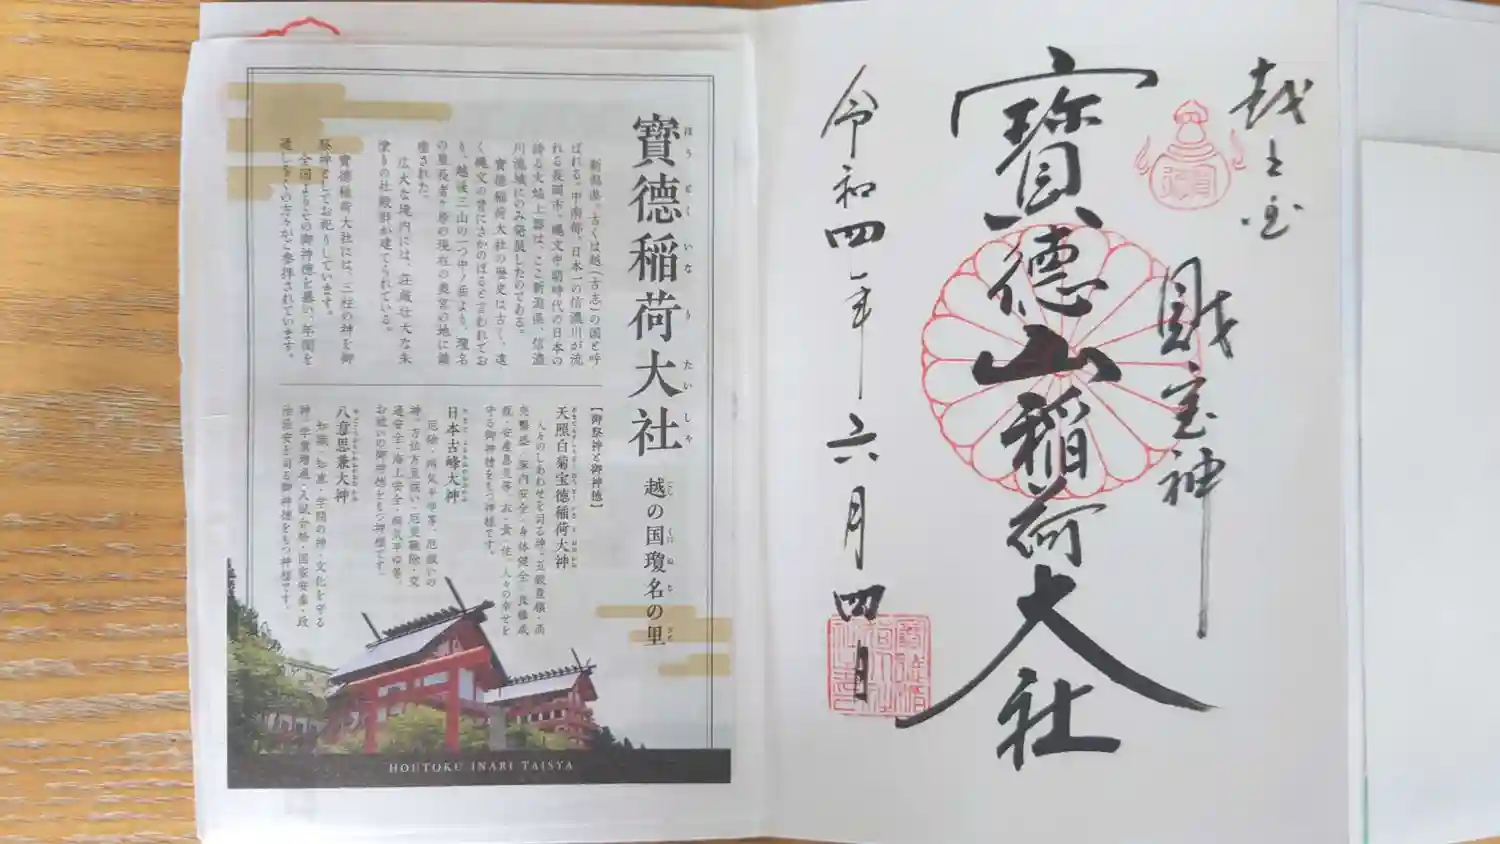 越之宝
財宝神
寶德山稲荷大社
令和四年六月四日
寶徳稲荷大社
ほうとくいなりたいしゃ
越の国瓊名の里
新潟県。古くは越(古志)の国と呼
ばれる。中南部、日本一の信濃川が流
れる長岡市。縄文中期時代の日本の
誇る火焔土器は、ここ新潟県、信濃
川流域にのみ発展したのである。
寶徳稲荷大社の歴史は古く、遠
く縄文の昔にさかのぼると言われてお
り、越後三山の一つ中ノ岳より、瓊名
の里長者ヶ原の現在の奥宮の地に鎮
座された。
広大な境内には、荘厳壮大な朱
塗りの社殿群が建てられている。
寶徳稲荷大社には、三柱の神を御
祭神としてお祀りしています。
全国よりその御神徳を慕い、年間を
通し多くの方々がご参拝されています。
【御祭神と御神徳】
天照白菊宝徳稲荷大神
人々のしあわせを司る神。五穀豊穣・商
売繁盛・家内安全・身体健全・良縁成
就・安産息災等、衣・食・住、人々の幸せを
守る御神徳をもつ神様です。
日本古峰大神
厄除・病気平癒等、厄祓いの
神。方位方災祓い・厄災難除・交
通安全・海上安全・病気平癒等、
お祓いの御神徳をもつ神様です。
八意思兼大神
知識・知恵・学問の神・文化を守る
神。学業増進・入試合格・国家安泰・政
治治安を司る御神徳をもつ神様です。
HOUTOKU INARI TAISYA